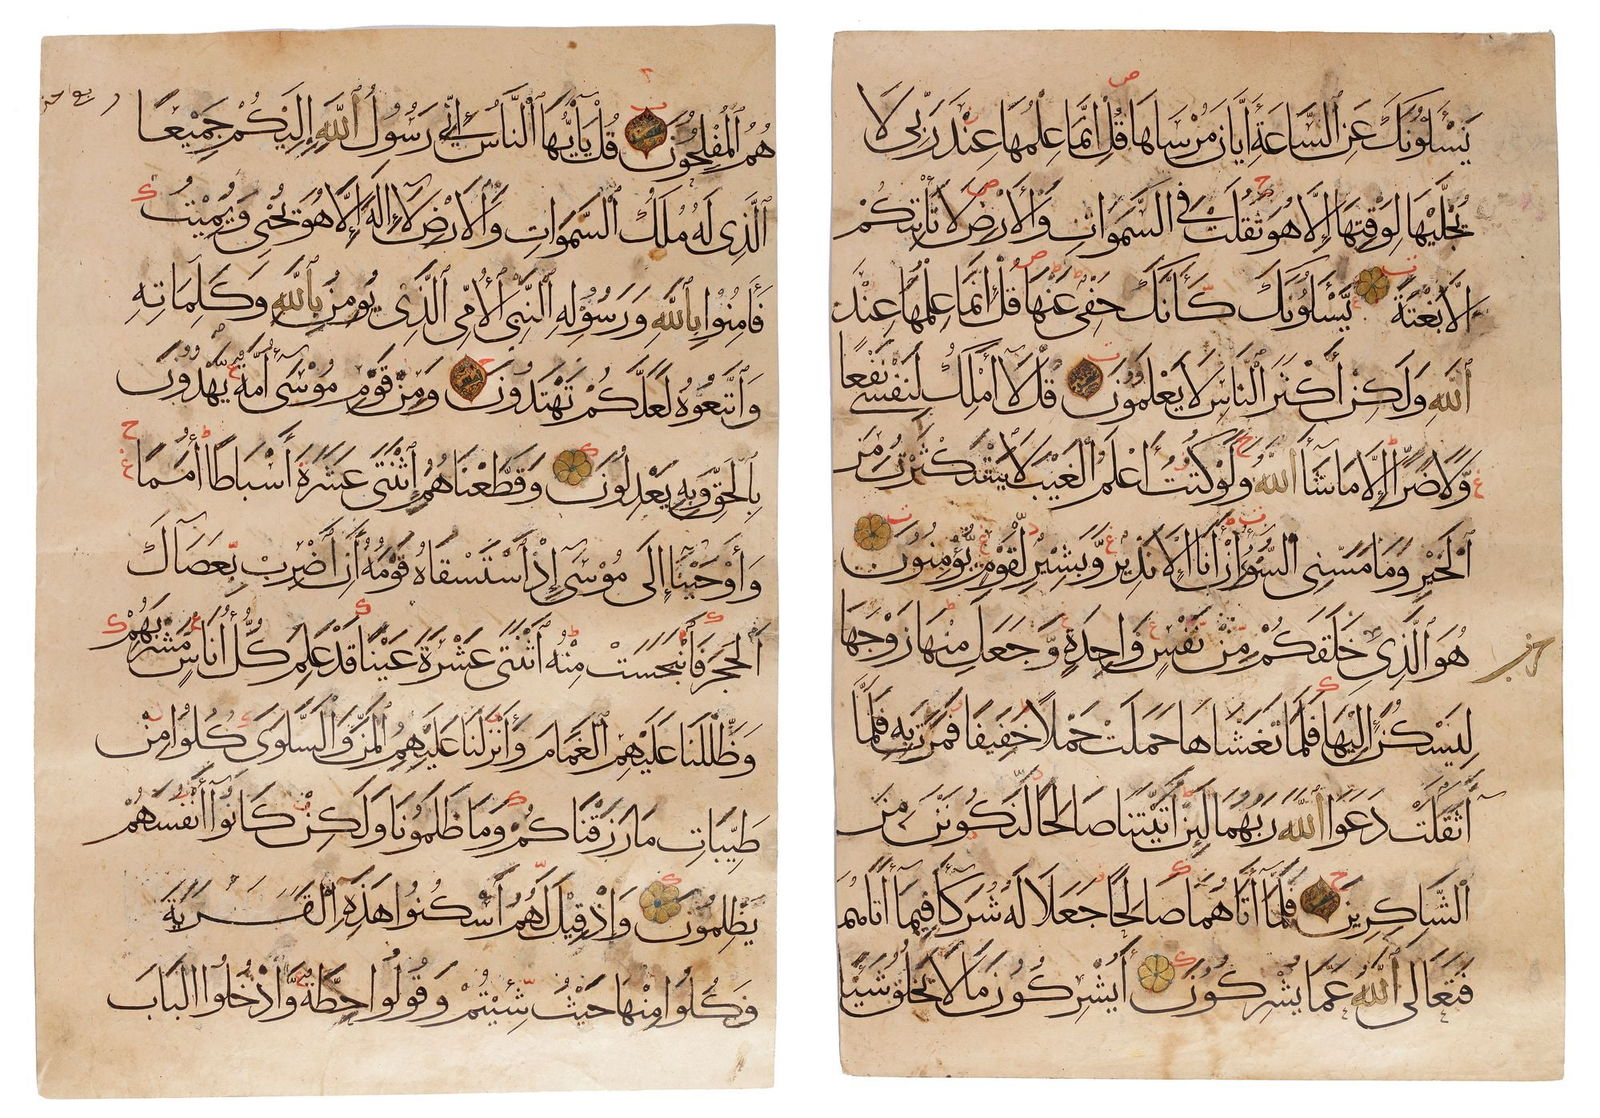 يَسْلُونَكَ عَنِ السَّاعَةِ أَيَّانَ مُرْسَاهَا قُلْ إِنَّمَا عِلْمُهَا عِنْدَ رَبِّي لَا
يُجَلِّيهَا لِوَقْتِهَا إِلَّا هُوَ ثَقُلَتْ فِي السَّمَوَاتِ وَالْأَرْضِ لَا تَأْتِيكُمْ
إِلَّا بَغْتَةً يَسْلُونَكَ كَأَنَّكَ حَفِيٌّ عَنْهَا قُلْ إِنَّمَا عِلْمُهَا عِنْدَ
اللَّهِ وَلَكِنَّ أَكْثَرَ النَّاسِ لَا يَعْلَمُونَ قُلْ لَا أَمْلِكُ لِنَفْسِي نَفْعًا
وَلَا ضَرًّا إِلَّا مَا شَاءَ اللَّهُ وَلَوْ كُنْتُ أَعْلَمُ الْغَيْبَ لَاسْتَكْثَرْتُ مِنَ
الْخَيْرِ وَمَا مَسَّنِيَ السُّوءُ إِنْ أَنَا إِلَّا نَذِيرٌ وَبَشِيرٌ لِقَوْمٍ يُؤْمِنُونَ
هُوَ الَّذِي خَلَقَكُمْ مِنْ نَفْسٍ وَاحِدَةٍ وَجَعَلَ مِنْهَا زَوْجَهَا
لِيَسْكُنَ إِلَيْهَا فَلَمَّا تَغَشَّاهَا حَمَلَتْ حَمْلًا خَفِيفًا فَمَرَّتْ بِهِ فَلَمَّا
أَثْقَلَتْ دَعَوَا اللَّهَ رَبَّهُمَا لَئِنْ آتَيْتَنَا صَالِحًا لَنَكُونَنَّ مِنَ
الشَّاكِرِينَ فَلَمَّا آتَاهُمَا صَالِحًا جَعَلَا لَهُ شُرَكَاءَ فِيمَا آتَاهُمَا
فَتَعَالَى اللَّهُ عَمَّا يُشْرِكُونَ أَيُشْرِكُونَ مَا لَا يَخْلُقُ شَيْئًا
هُمُ الْمُفْلِحُونَ قُلْ يَا أَيُّهَا النَّاسُ إِنِّي رَسُولُ اللَّهِ إِلَيْكُمْ جَمِيعًا
الَّذِي لَهُ مُلْكُ السَّمَوَاتِ وَالْأَرْضِ لَا إِلَهَ إِلَّا هُوَ يُحْيِي وَيُمِيتُ
فَآمِنُوا بِاللَّهِ وَرَسُولِهِ النَّبِيِّ الْأُمِّيِّ الَّذِي يُؤْمِنُ بِاللَّهِ وَكَلِمَاتِهِ
وَاتَّبِعُوهُ لَعَلَّكُمْ تَهْتَدُونَ وَمِنْ قَوْمِ مُوسَى أُمَّةٌ يَهْدُونَ
بِالْحَقِّ وَبِهِ يَعْدِلُونَ وَقَطَّعْنَاهُمُ اثْنَتَيْ عَشْرَةَ أَسْبَاطًا أُمَمًا
وَأَوْحَيْنَا إِلَى مُوسَى إِذِ اسْتَسْقَاهُ قَوْمُهُ أَنِ اضْرِبْ بِعَصَاكَ
الْحَجَرَ فَانْبَجَسَتْ مِنْهُ اثْنَتَا عَشْرَةَ عَيْنًا قَدْ عَلِمَ كُلُّ أُنَاسٍ مَشْرَبَهُمْ
وَظَلَّلْنَا عَلَيْهِمُ الْغَمَامَ وَأَنْزَلْنَا عَلَيْهِمُ الْمَنَّ وَالسَّلْوَى كُلُوا مِنْ
طَيِّبَاتِ مَا رَزَقْنَاكُمْ وَمَا ظَلَمُونَا وَلَكِنْ كَانُوا أَنْفُسَهُمْ
يَظْلِمُونَ وَإِذْ قِيلَ لَهُمُ اسْكُنُوا هَذِهِ الْقَرْيَةَ
وَكُلُوا مِنْهَا حَيْثُ شِئْتُمْ وَقُولُوا حِطَّةٌ وَادْخُلُوا الْبَابَ